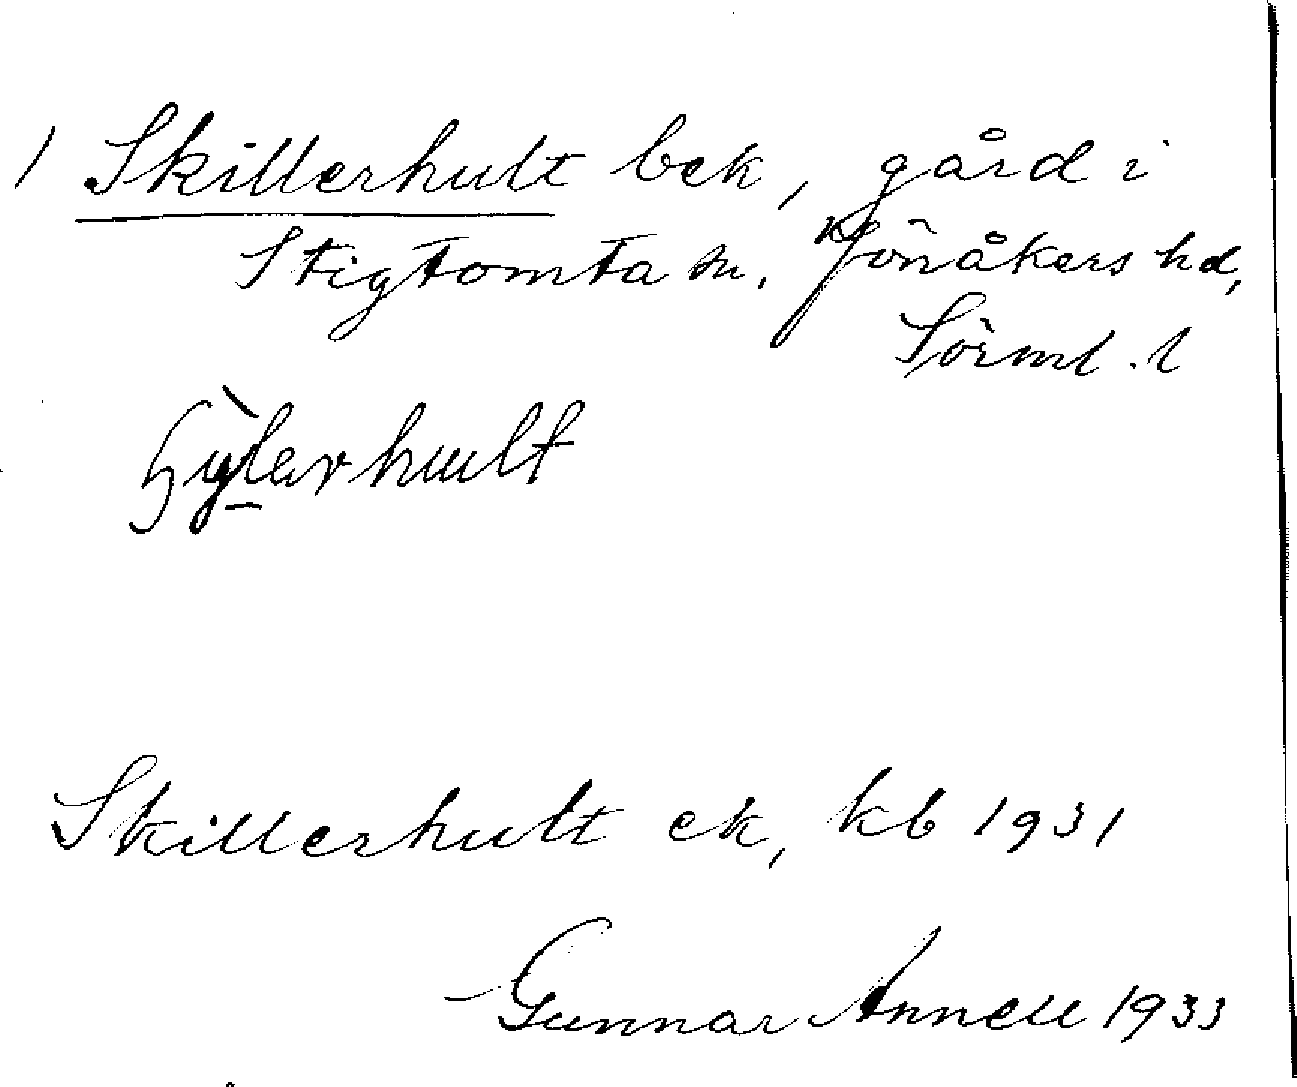 1 Skillerhult bek, gård i
Stigtomta sn. Jönåkers hd,
Sörml. l
Skillerhult ek, kb 1931
Gunnar Annell 1933